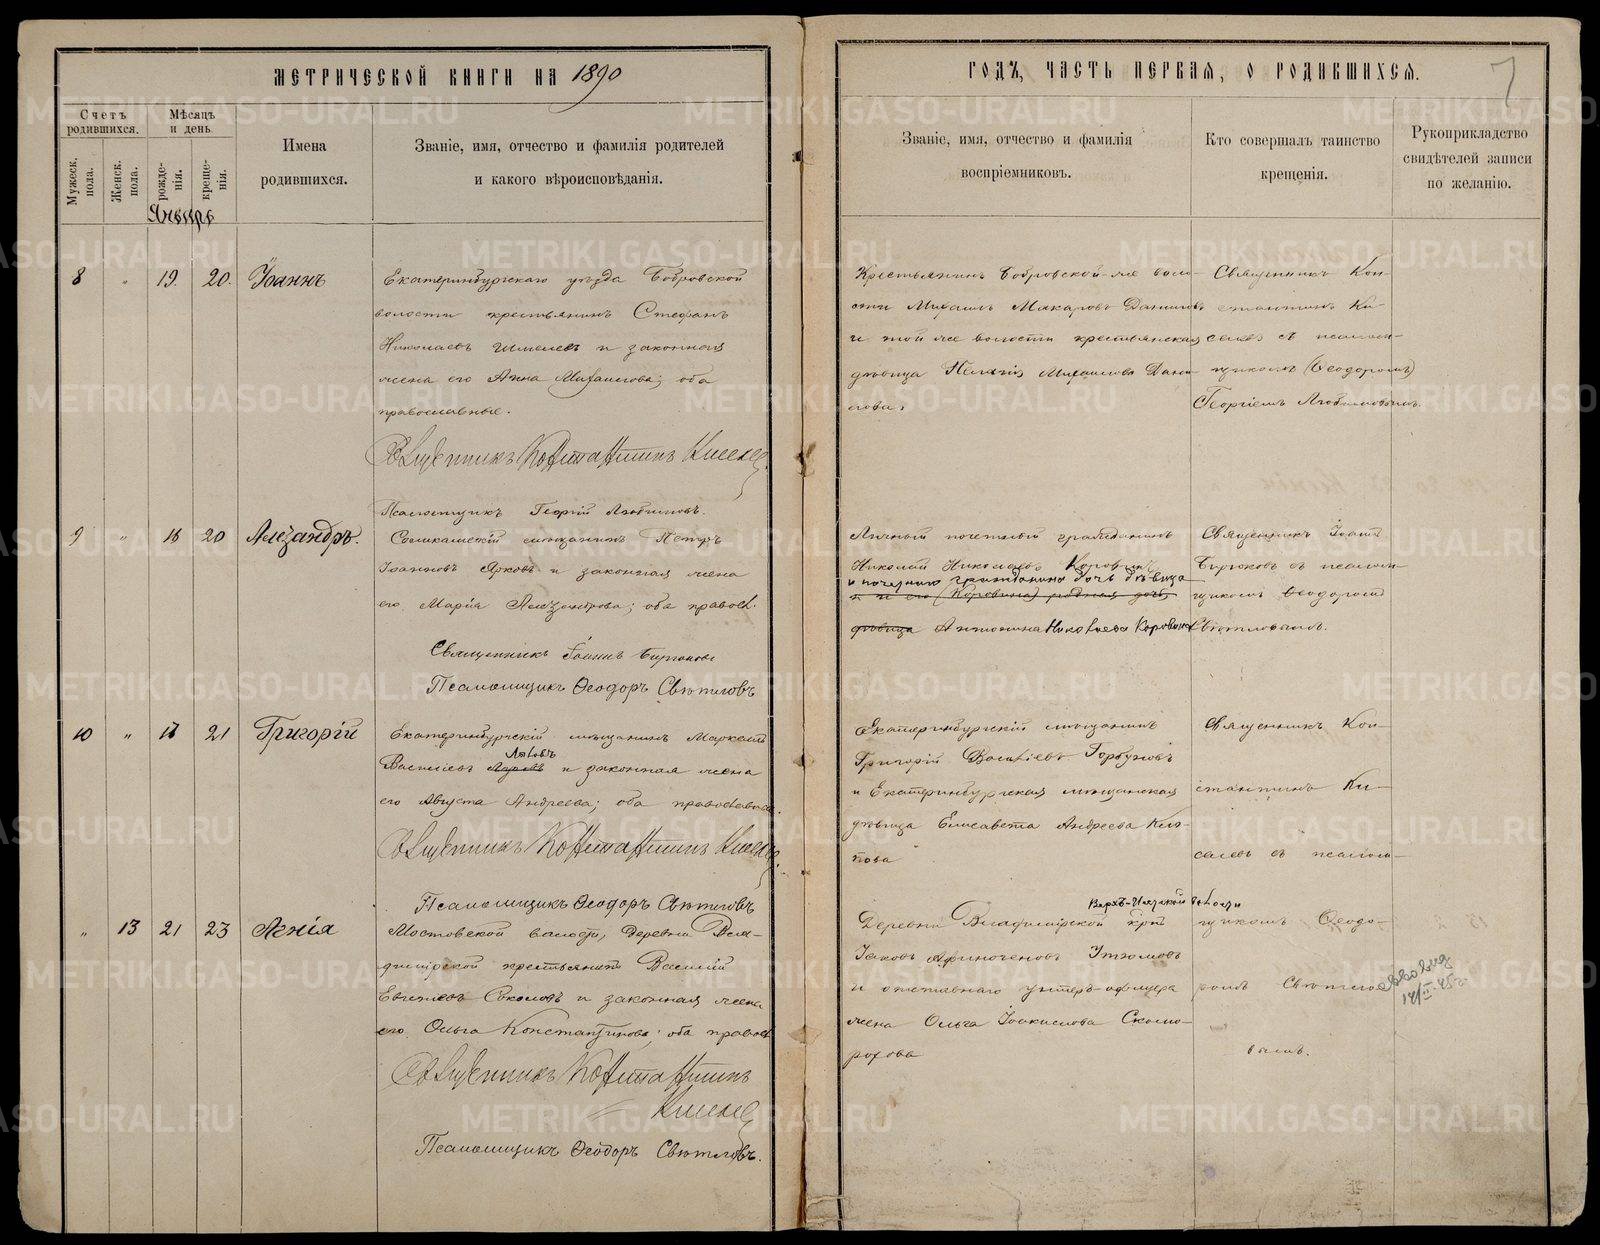 МЕТРИЧЕСКОЙ КНИГИ НА 1890
ГОДЪ, ЧАСТЬ ПЕРВАЯ, О РОДИВШИХСЯ.
7
Счетъ родившихся.
Мѣсяцъ и день
Мужеск. пола.
Женск. пола.
рожде-нія.
креще-нія.
Имена
родившихся.
Званіе, имя, отчество и фамилія родителей
и какого вѣроисповѣданія.
Званіе, имя, отчество и фамилія
воспріемниковъ.
Кто совершалъ таинство
крещенія.
Рукоприкладство
свидѣтелей записи
по желанію.
Январь
8 " 19. 20. Іоаннъ
Екатеринбургскаго уѣзда Бобровской
волости крестьянинъ Стефанъ
Николаевъ и законная
жена его Анна Михаилова; оба
православные.
Священникъ Константинъ Киселев
Псаломщикъ Георгій Любимовъ.
Крестьянинъ Бобровской же воло-
сти Михаилъ Макаровъ Даниловъ
и той же волости крестьянская
дѣвица Михаилова Дани-
лова.
Священникъ Кон-
стантинъ Ки-
селевъ съ псалом-
щикомъ (Ѳеодоромъ)
Георгіемъ Любимовымъ.
9 " 16 20 Александръ.
Соликамскій мѣщанинъ Петръ
Іоанновъ Ярковъ и законная жена
его Марія Александрова; оба правосл.
Священникъ Іоаннъ Бирюковъ
Псаломщикъ Ѳеодоръ Свѣтловъ
Личный почетный гражданинъ
Николай Николаевъ Коровинъ
и почетнаго гражданина дочь дѣвица
и его (Коровина) родная дочь
дѣвица Антонина Николаева Коровина
Священникъ Іоаннъ
Бирюковъ съ псалом-
щикомъ Ѳеодоромъ
Свѣтловымъ.
10 " 17 21 Григорій
Екатеринбургскій мѣщанинъ
Васильевъ и законная жена
его Августа Андреева; оба православные.
Священникъ Константинъ Киселев
Псаломщикъ Ѳеодоръ Свѣтловъ
Екатеринбургскій мѣщанинъ
Григорій Васильевъ Горбуновъ
и Екатеринбургская мѣщанская
дѣвица Елисавета Андреева
пова
Священникъ Кон-
стантинъ Ки-
селевъ съ псалом-
щикомъ Ѳеодо-
ромъ Свѣтло-
вымъ.
" 13 21 23 Ксенія
Мостовской волости, деревни Вла-
димірской крестьянинъ Василій
и законная жена
его Ольга Константинова; оба правосл.
Священникъ Константинъ
Киселев
Псаломщикъ Ѳеодоръ Свѣтловъ.
волости
Деревни Владимірской
Іаковъ
и отставнаго унтеръ-офицера
жена Ольга Скомо-
рохова
METRIKI.GASO-URAL.RU